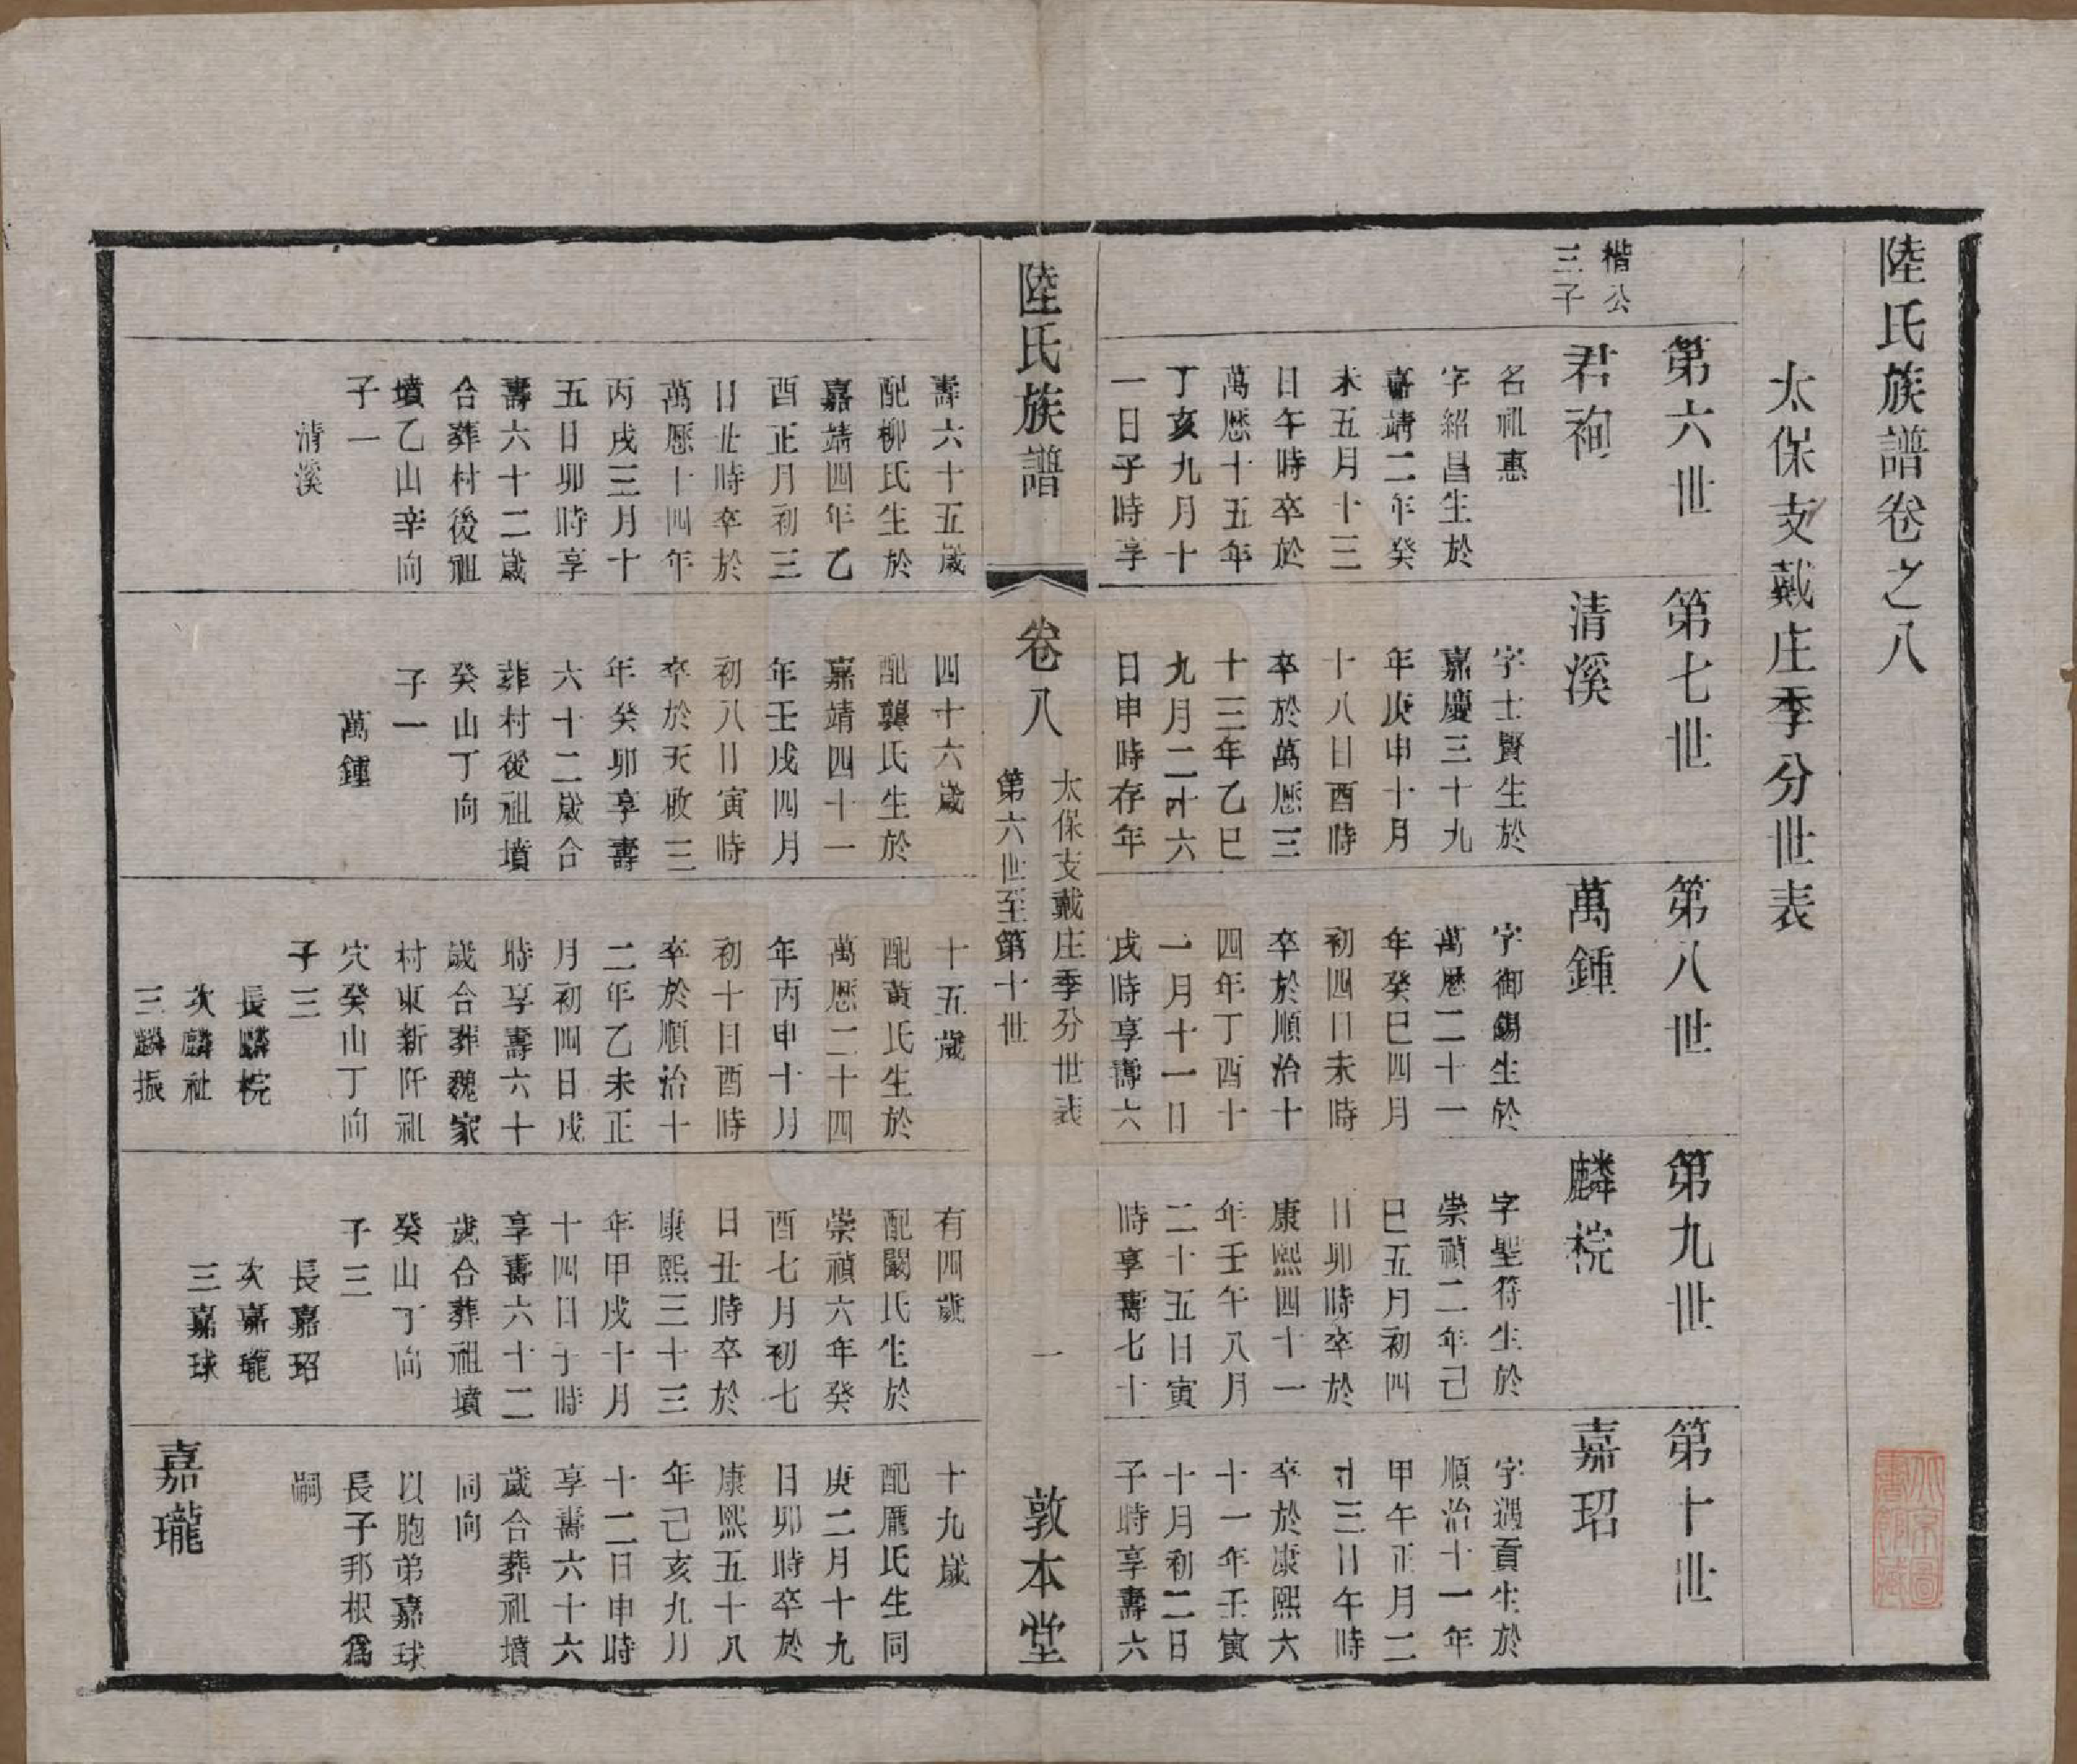 陸氏族譜卷之八
太保支戴庄季分世表
第六世
楷公
三子
君裪
名祖惠
字紹昌生於
嘉靖二年癸
未五月十三
日午時卒於
萬歷十五年
丁亥九月十
一日子時享
第七世
清溪
字士賢生於
嘉慶三十九
年庚申十月
十八日酉時
卒於萬歷三
十三年乙巳
九月二十六
日申時存年
第八世
萬鍾
字御錫生於
萬歷二十一
年癸巳四月
初四日未時
卒於順治十
四年丁酉十
一月十一日
戌時享壽六
第九世
麟梡
字聖符生於
崇禎二年己
巳五月初四
日卯時卒於
康熙四十一
年壬午八月
二十五日寅
時享壽七十
第十世
嘉玿
字遇貢生於
順治十一年
甲午正月二
十三日午時
卒於康熙六
十一年壬寅
十月初二日
子時享壽六
陸氏族譜
卷八
太保支戴庄季分世表
第六世至第十世
一
敦本堂
壽六十五歲
配柳氏生於
嘉靖四年乙
酉正月初三
日丑時卒於
萬歷十四年
丙戌三月十
五日卯時享
壽六十二歲
合葬村後祖
墳乙山辛向
子一
清溪
四十六歲
配龔氏生於
嘉靖四十一
年壬戌四月
初八日寅時
卒於天啟三
年癸卯享壽
六十二歲合
葬村後祖墳
癸山丁向
子一
萬鍾
十五歲
配黃氏生於
萬歷二十四
年丙申十月
初十日酉時
卒於順治十
二年乙未正
月初四日戌
時享壽六十
歲合葬魏家
村東新阡祖
穴癸山丁向
子三
長麟梡
次麟祉
三麟振
有四歲
配闞氏生於
崇禎六年癸
酉七月初七
日丑時卒於
康熙三十三
年甲戌十月
十四日子時
享壽六十二
歲合葬祖墳
癸山丁向
子三
長嘉玿
次嘉瓏
三嘉球
十九歲
配龐氏生同
庚二月十九
日卯時卒於
康熙五十八
年己亥九月
十二日申時
享壽六十六
歲合葬祖墳
同向
以胞弟嘉球
長子邦根爲
嗣
嘉瓏